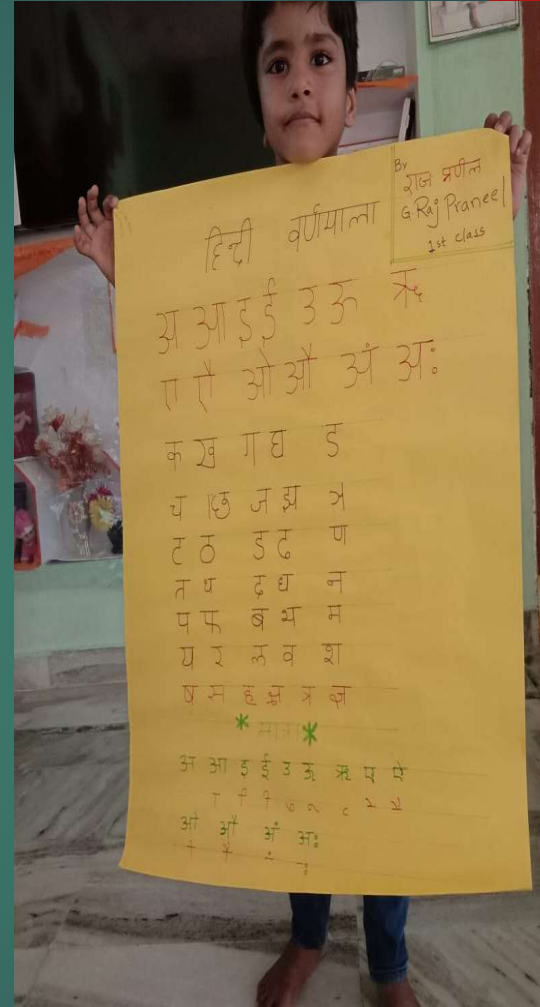 By
राज प्रणील
G Raj Praneel
1st class
हिन्दी वर्णमाला
अ आ इ ई उ ऊ ऋ
ए ऐ ओ औ अं अः
क ख ग घ ड
च छ ज झ ञ
ट ठ ड ढ ण
त थ द ध न
प फ ब भ म
य र ल व श
ष स ह क्ष त्र ज्ञ
* मात्रा *
अ आ इ ई उ ऊ ऋ ए ऐ
ा ि ी ु ू ृ े ै
ओ औ अं अः
ो ौ ं ः